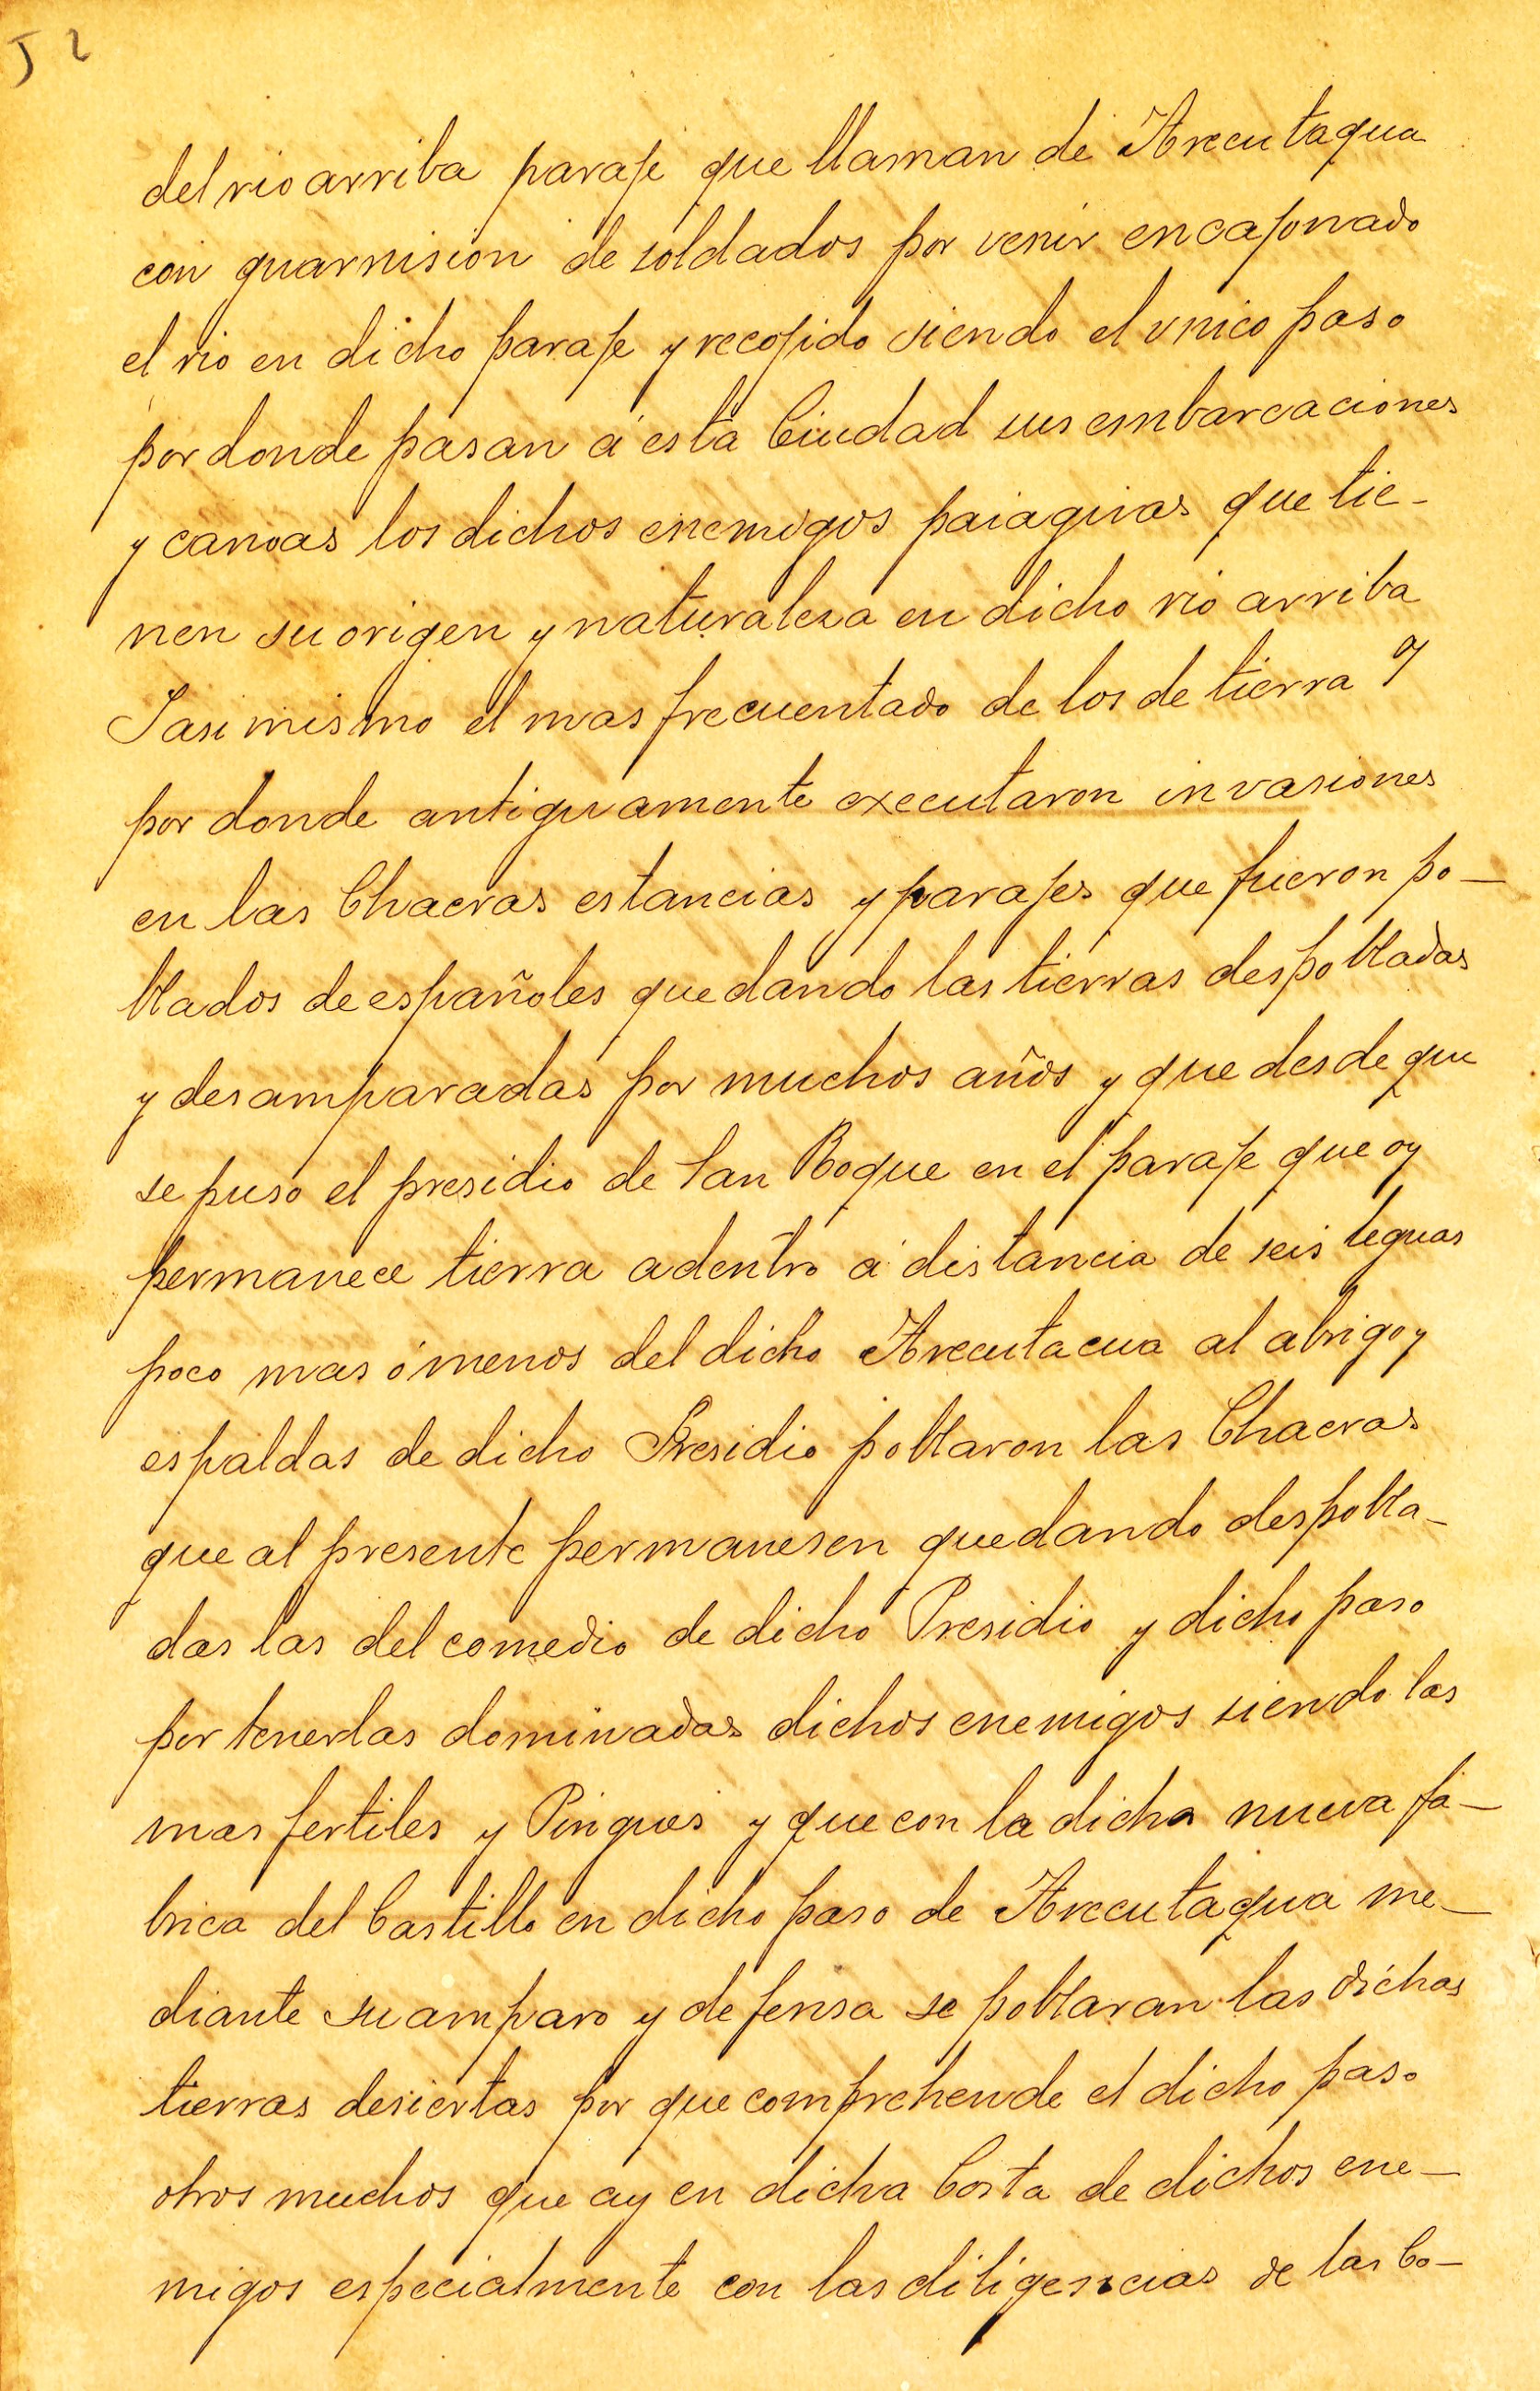 52
del rio arriba paraje que llaman de Arecutaqua
con guarnision de soldados por venir encajonado
el rio en dicho paraje y recojido siendo el vnico paso
por donde pasan á esta Ciudad sus embarcaciones
y canoas los dichos enemigos paiaguas que tie-
nen su origen y naturalesa en dicho rio arriba
I asi mismo el mas frecuentado de los de tierra y
por donde antiguamente executaron invasiones
en las Chacras estancias y parajes que fueron po-
blados de españoles quedando las tierras despobladas
y desamparadas por muchos años y que desde que
se puso el presidio de San Roque en el paraje que oy
permanece tierra adentro á distancia de seis leguas
poco mas ó menos del dicho Arecutacua al abrigo y
espaldas de dicho Presidio poblaron las Chacras
que al presente permanesen quedando despobla-
das las del comedio de dicho Presidio y dicho paso
por tenerlas dominadas dichos enemigos siendo las
mas fertiles y Pingues y que con la dicha nueva fa-
brica del Castillo en dicho paso de Arecutaqua me-
diante su amparo y defensa se poblaran las dichas
tierras desiertas por que comprehende el dicho paso
otros muchos que ay en dicha Costa de dichos ene-
migos especialmente con las diligencias de las Co-